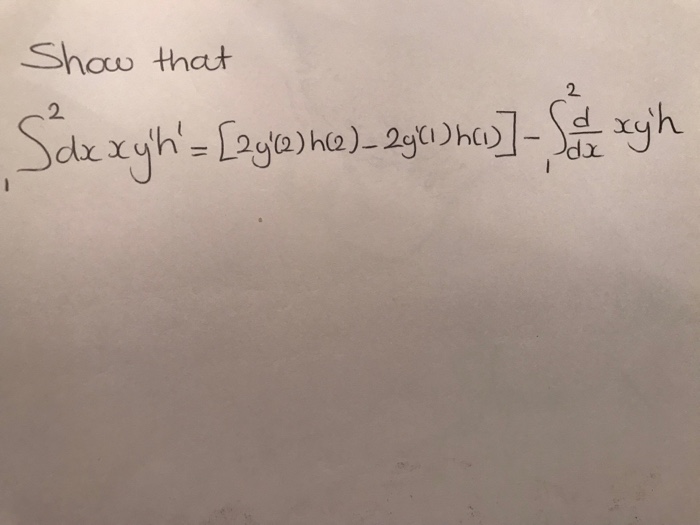 Show that
∫₁² dx x y'h' = [2y'(2)h(2) - 2y'(1)h(1)] - ∫₁² d/dx xy'h